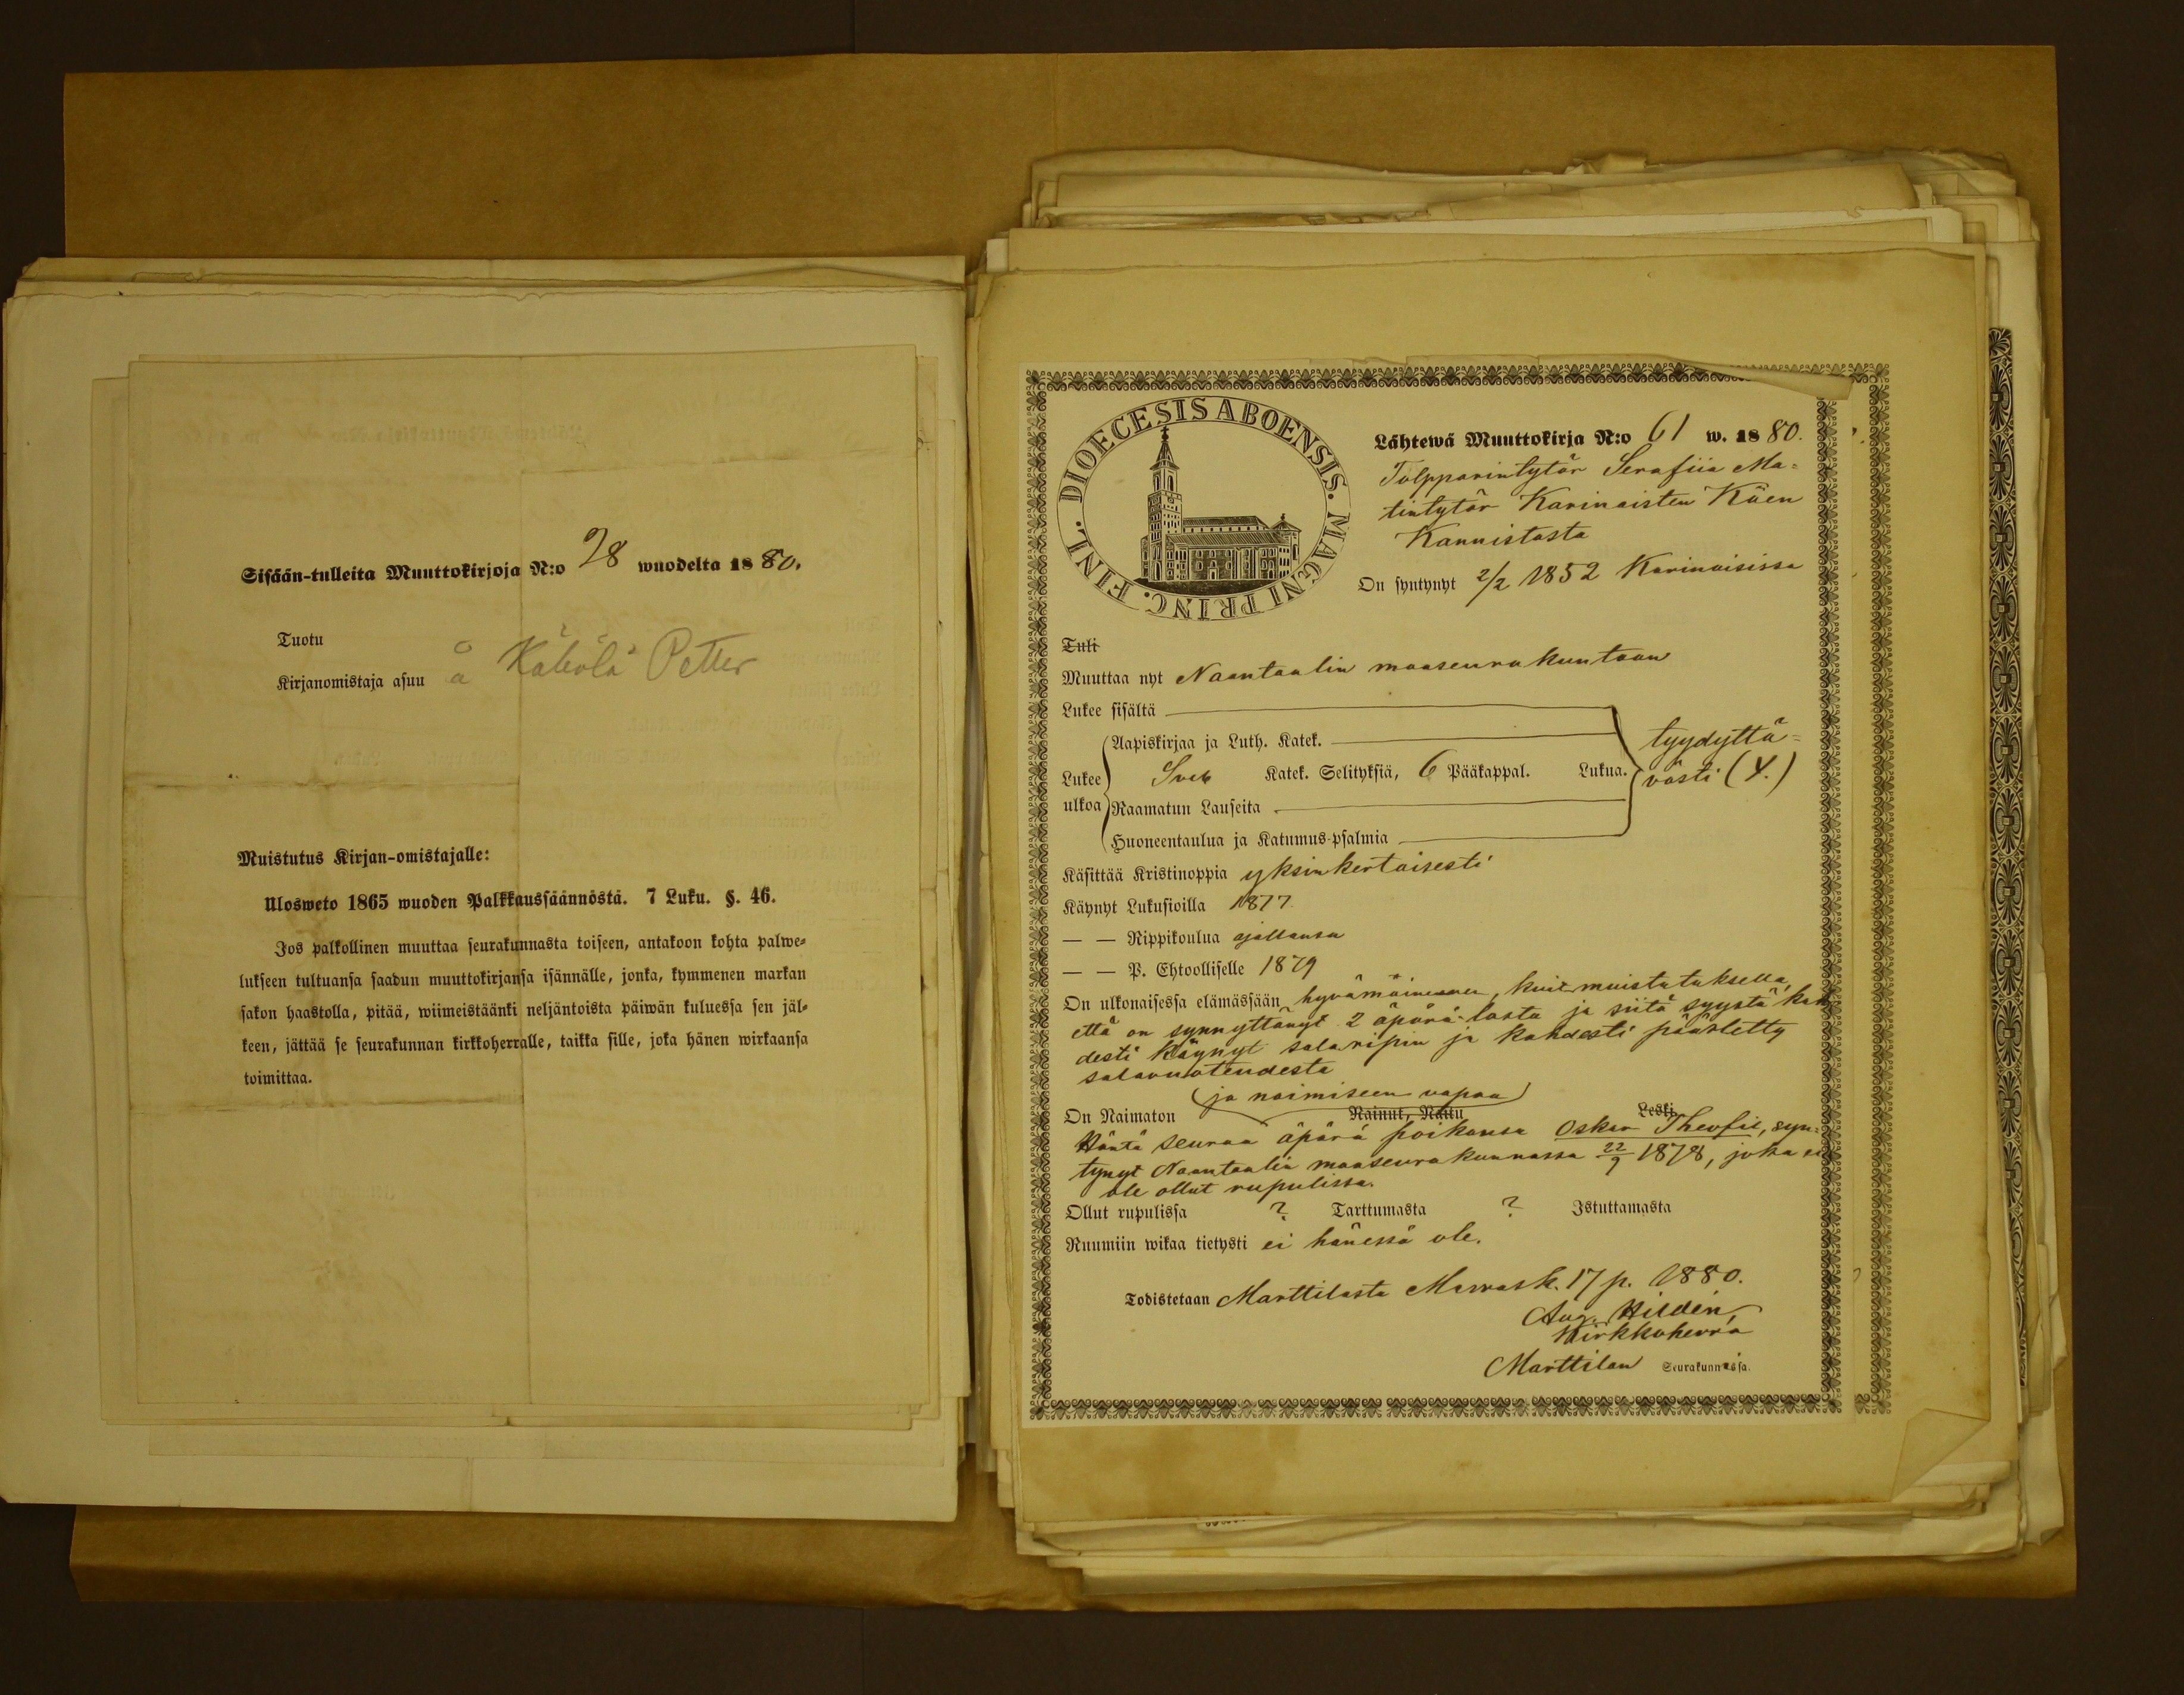 Sisään-tulleita Muuttokirjoja N:o 28 wuodelta 1880.
Tuotu
Kirjanomistaja asuu å Käkölä Petter
Muistutus Kirjan-omistajalle:
Ulosweto 1865 wuoden Palkkaussäännöstä. 7 Luku. §. 46.
Jos palkollinen muuttaa seurakunnasta toiseen, antakoon kohta palwe-
lukseen tultuansa saadun muuttokirjansa isännälle, jonka, kymmenen markan
sakon haastolla, pitää, wiimeistäänki neljäntoista päiwän kuluessa sen jäl-
keen, jättää se seurakunnan kirkkoherralle, taikka sille, joka hänen wirkaansa
toimittaa.
DIOECESIS ABOENSIS. MAGNI PRINC. FINL.
Lähtewä Muuttokirja N:o 61 w. 1880.
Tolpparintytär Serafiia Ma-
tintytär Karinaisten Käen
Kannistosta
On syntynyt 2/2 1852 Karinaisissa
Tuli
Muuttaa nyt Naantaalin maaseurakuntaan
Lukee sisältä
Aapiskirjaa ja Luth. Katek.
tyydyttä-
Lukee ulkoa Sveb Katek. Selityksiä, 6 Pääkappal. Lukua. västi (Y.)
Raamatun Lauseita
Huoneentaulua ja Katumus-psalmia
Käsittää Kristinoppia yksinkertaisesti
Käynyt Lukusioilla 1877
— — Rippikoulua ajallansa
— — P. Ehtoolliselle 1879
On ulkonaisessa elämässään hyvämaineinen, kuit muistutuksella,
että on synnyttänyt 2 äpärä-lasta ja siitä syystä kah
desti käynyt salaripin ja kahdesti päästetty
salavuoteudesta
(ja naimiseen vapaa)
On Naimaton Nainut, Naitu Leski
Häntä seuraa äpärä poikansa Oskar Theofil, syn-
tynyt Naantaalin maaseurakunnassa 22/9 1878, joka ei
ole ollut rupulissa.
Ollut rupulissa ? Tarttumasta ? Istuttamasta
Ruumiin wikaa tietysti ei hänessä ole.
Todistetaan Marttilasta Marrask. 17 p. 1880.
Aug. Hildén,
Kirkkoherra
Marttilan Seurakunnassa.